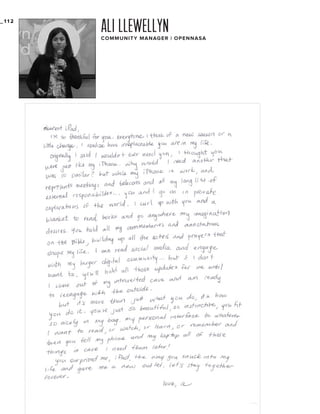 _112
ALI LLEWELLYN
COMMUNITY MANAGER | OPENNASA
Dearest iPad,
I'm so thankful for you. Everytime I think of a new season or a
little change, I realize how irreplaceable you are in my life.
Originally I said I wouldn't ever need you, I thought you
were just like my iPhone. Why would I need another that
was so similar? But while my iPhone is work, and
represents meetings and telecons and all my long list of
external responsibilities... you and I go on in private
explorations of the world. I curl up with you and a
blanket to read books and go anywhere my imagination
desires. You hold all my commentaries and annotations
on the Bible, building up all the notes and prayers that
shape my life. I can read social media and engage
with my larger digital community... but if I don't
want to, you'll hold all those updates for me until
I come out of my introverted cave and am ready
to reengage with the outside.
But it's more than just what you do, it's how
you do it. You're just so beautiful, so instinctive, you fit
so nicely in my bag. My personal interface to whatever
I want to read, or watch, or learn, or remember and
even you tell my phone and my laptop all of those
things in case I need them later!
You surprised me, iPad, the way you snuck into my
life and gave me a new outlet. Let's stay together
forever.
love, a